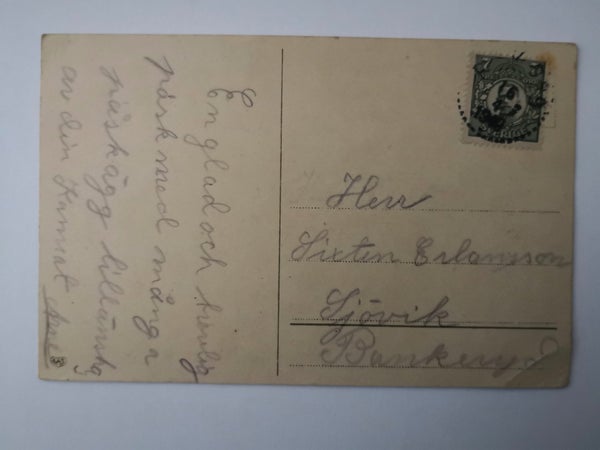 En glad och trevlig
påsk med många
påskägg tillönskas
av din Kamrat
Herr
Sixten Erlansson
Sjövik
Bankeryd